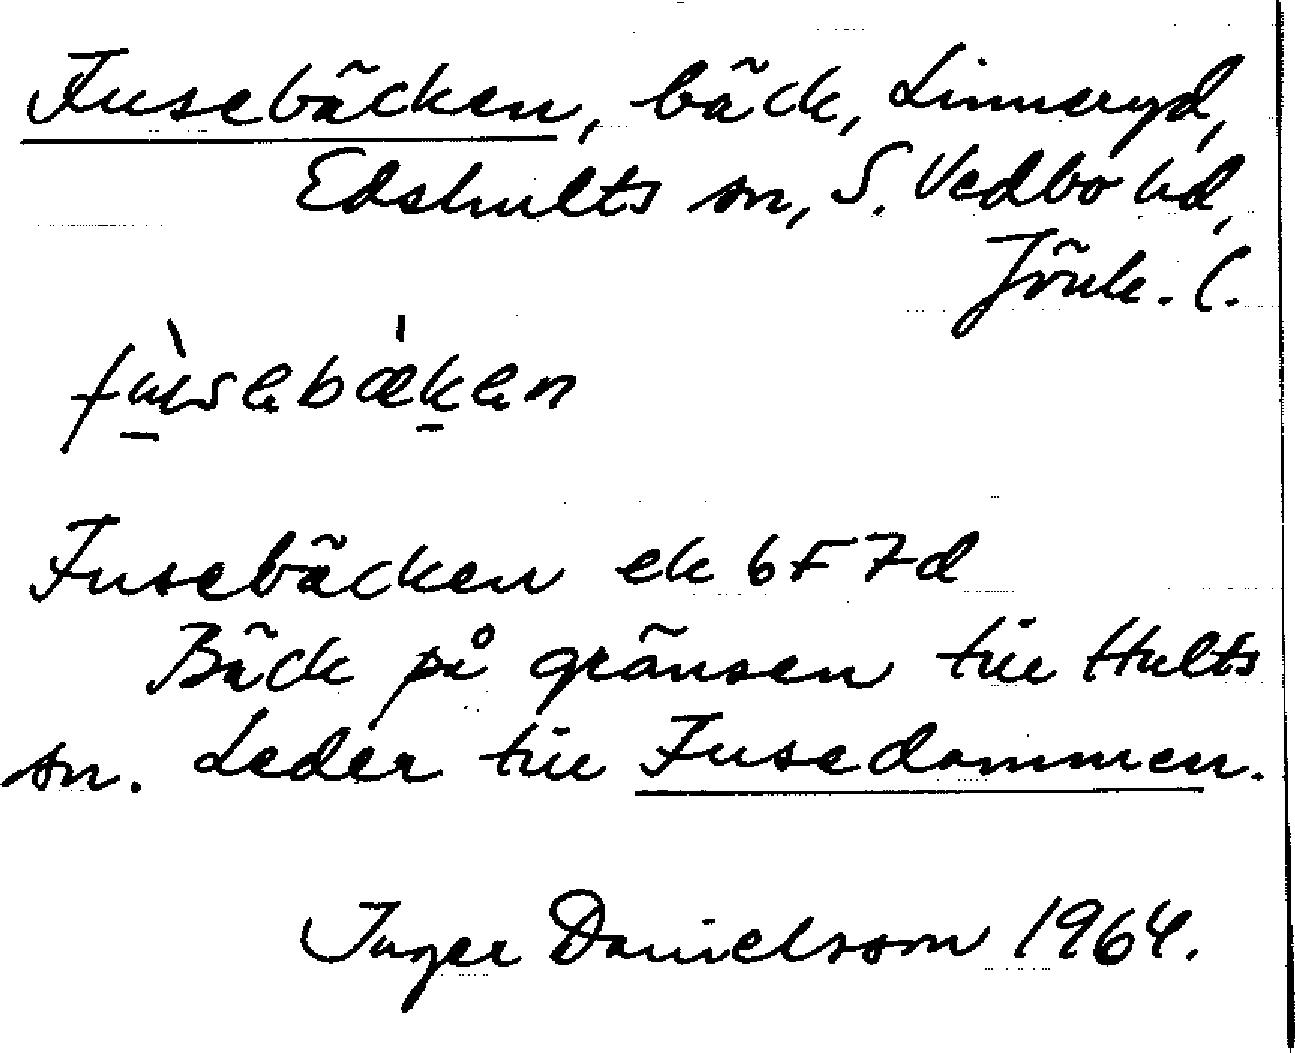 Fusebäcken, bäck, Linneryd,
Edshults sn, S. Vedbo hd,
Jönk. l.
fùsebæken
Fusebäcken ek 6F7d
Bäck på gränsen till Hults
sn. Leder till Fusedammen.
Inger Danielsson 1964.